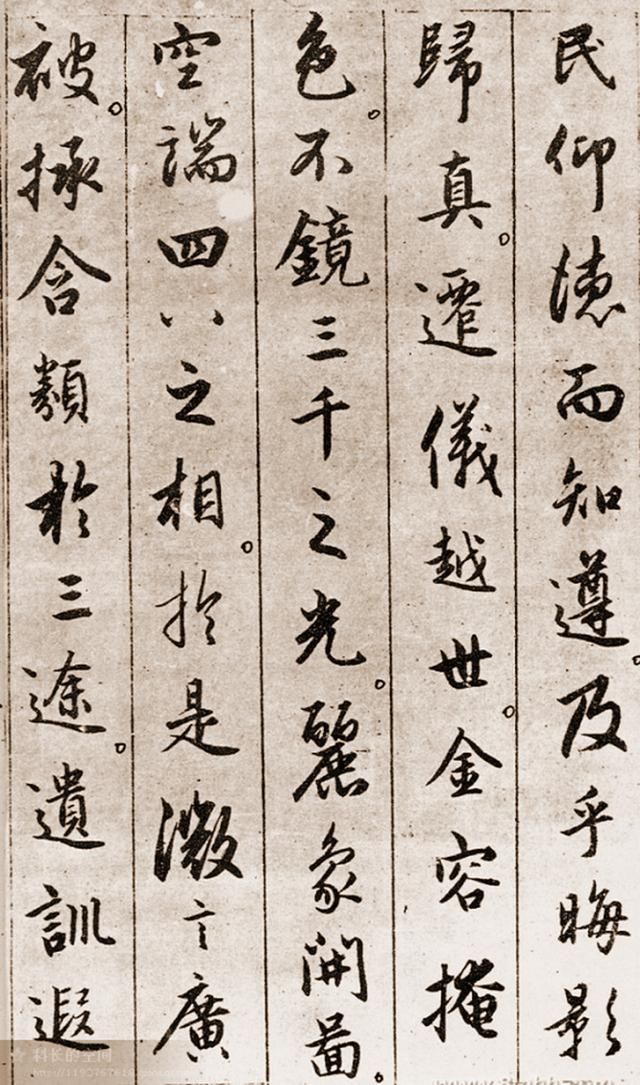 民仰德而知遵。及乎晦影
歸真。遷儀越世。金容掩
色。不鏡三千之光。麗象開圖。
空端四八之相。於是微言廣
被。拯含類於三途。遺訓遐
科长的空间